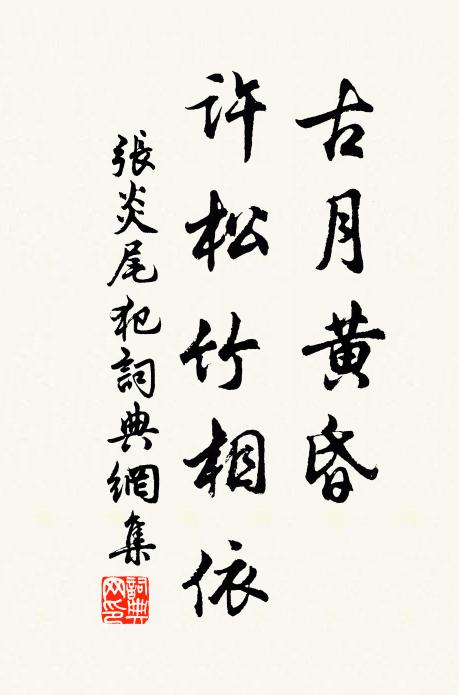 古月黄昏
許松竹相依
張炎尾犯詞典網集
詞典
网印